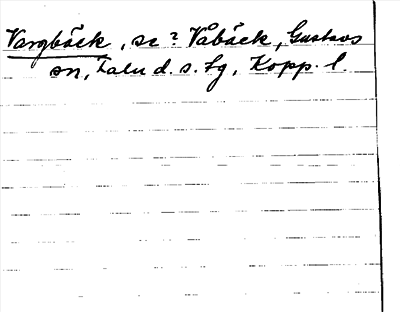 Vargbäck, se? Våbäck, Gustavs
sn, Falu d. s. fg, Kopp. l.